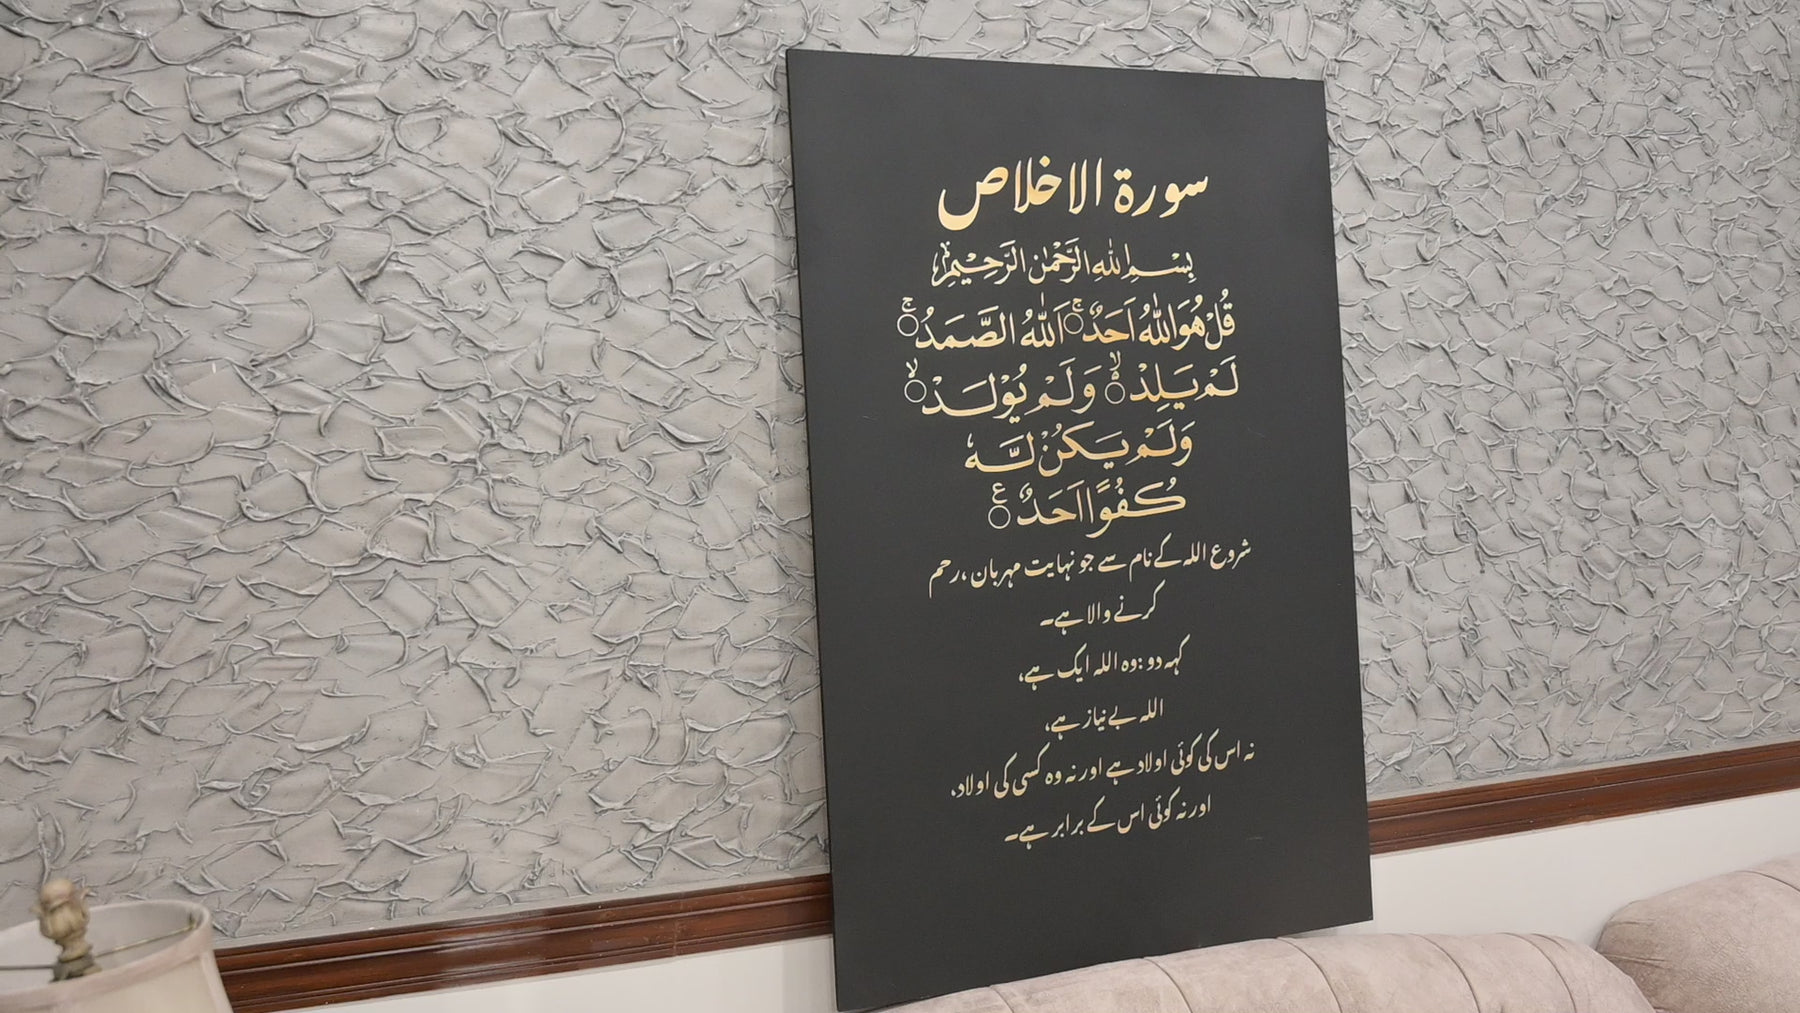 سورة الاخلاص
بِسْمِ اللّٰهِ الرَّحْمٰنِ الرَّحِيْمِۙ
قُلْ هُوَ اللّٰهُ اَحَدٌ۝ۚ اَللّٰهُ الصَّمَدُ۝ۚ
لَمْ يَلِدْ۝ۙ وَلَمْ يُوْلَدْ۝ۙ
وَلَمْ يَكُنْ لَّهٗ
كُفُوًا اَحَدٌ۝ع
شروع اللہ کے نام سے جو نہایت مہربان ،رحم
کرنے والا ہے۔
کہہ دو :وہ اللہ ایک ہے،
اللہ بے نیاز ہے،
نہ اس کی کوئی اولاد ہے اور نہ وہ کسی کی اولاد،
اور نہ کوئی اس کے برابر ہے۔